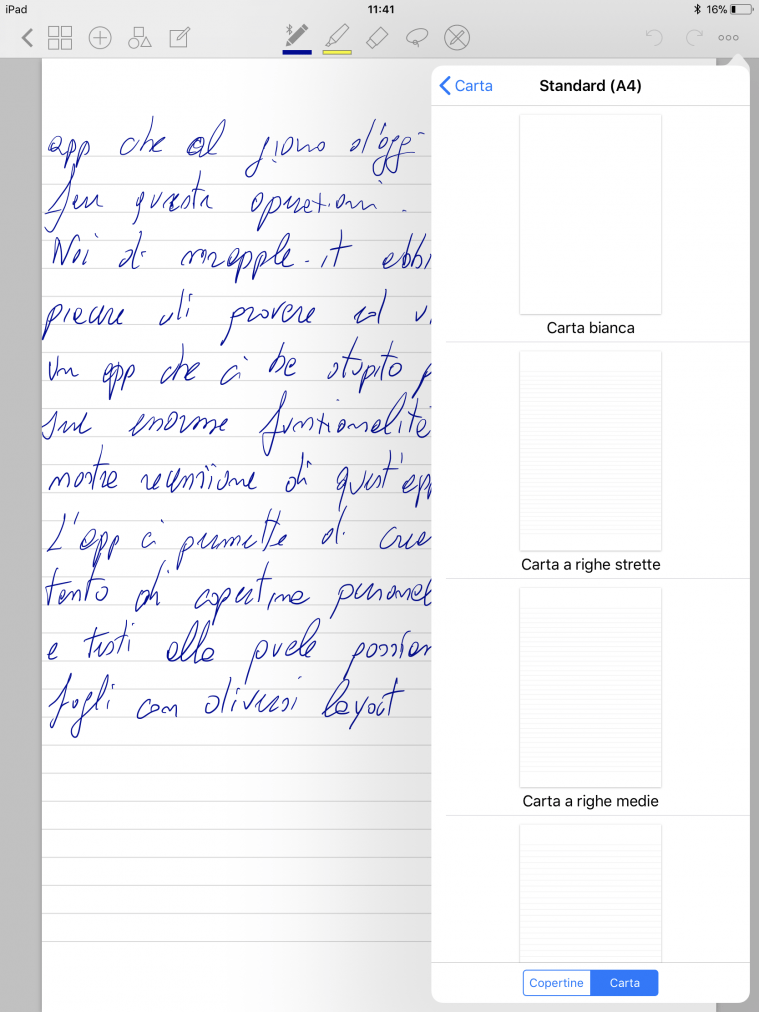 iPad
11:41
16%
Carta
Standard (A4)
app che al giorno d'oggi
fare queste operazioni.
Noi di mrapple.it abbi
piacere di provare
un app che ci ha stupito p
sue enorme funzionalità
nostra recensione di quest'app
L'app ci permette di crea
tanto di copertina personal
e testi alla quale possiam
fogli con diversi layout
Carta bianca
Carta a righe strette
Carta a righe medie
Copertine
Carta